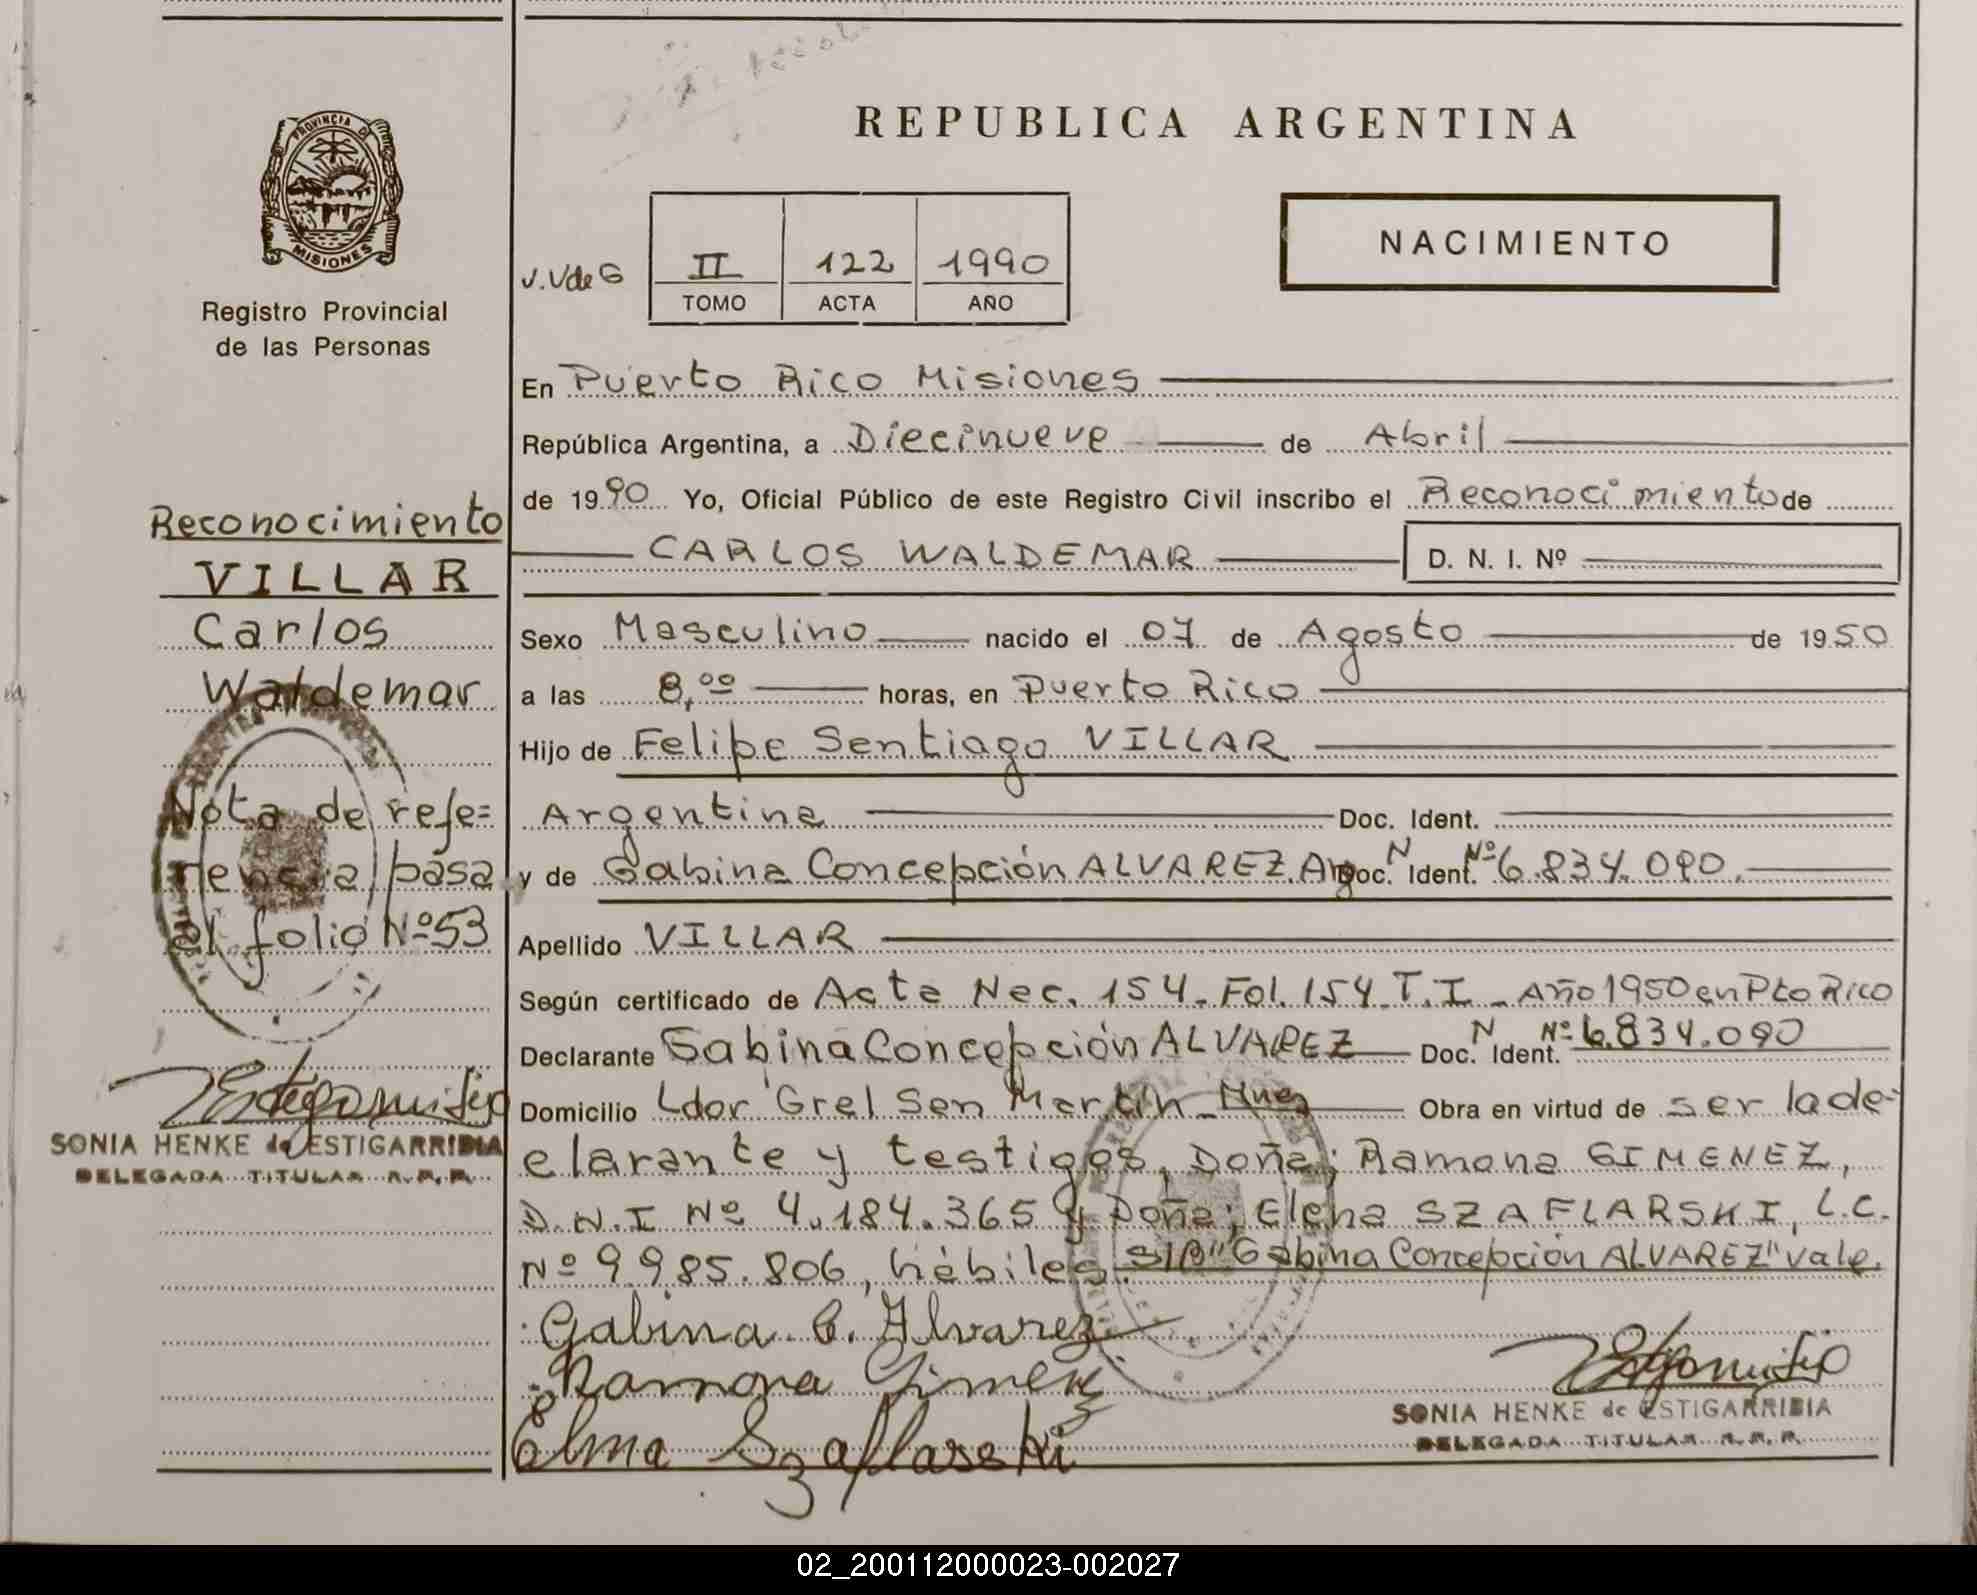 REPUBLICA ARGENTINA
PROVINCIA DE
MISIONES
Registro Provincial
de las Personas
J.V de G
II 122 1990
TOMO ACTA AÑO
NACIMIENTO
En Puerto Rico Misiones
República Argentina, a Diecinueve de Abril
de 1990 Yo, Oficial Público de este Registro Civil inscribo el Reconocimiento de
CARLOS WALDEMAR D. N. I. Nº
Sexo Masculino nacido el 07 de Agosto de 1950
a las 8,00 horas, en Puerto Rico
Hijo de Felipe Sentiago VILLAR
Argentina Doc. Ident.
y de Gabina Concepción ALVAREZ Arg Doc. N Ident. Nº 6.834.090.
Apellido VILLAR
Según certificado de Acta Nac. 154. Fol. 154. T. I - Año 1950 en Pto Rico
Declarante Gabina Concepción ALVAREZ Doc. N Ident. Nº 6.834.090
Domicilio Ldor Gral San Martín Mnes Obra en virtud de ser la de-
clarante y testigos, Doña; Ramona GIMENEZ,
D.N.I Nº 4.184.365 y Doña; Elena SZAFLARSKI, L.C.
Nº 9.985.806, hábiles. S/B "Gabina Concepción ALVAREZ" vale.
Gabina C. Alvarez
Ramona Gimenez
Elma Szaflarski
SONIA HENKE de ESTIGARRIBIA
DELEGADA TITULAR R. P. P.
Reconocimiento
VILLAR
Carlos
Waldemar
Nota de refe=
rencia pasa
al folio Nº 53
SONIA HENKE de ESTIGARRIBIA
DELEGADA TITULAR R. P. P.
02_200112000023-002027